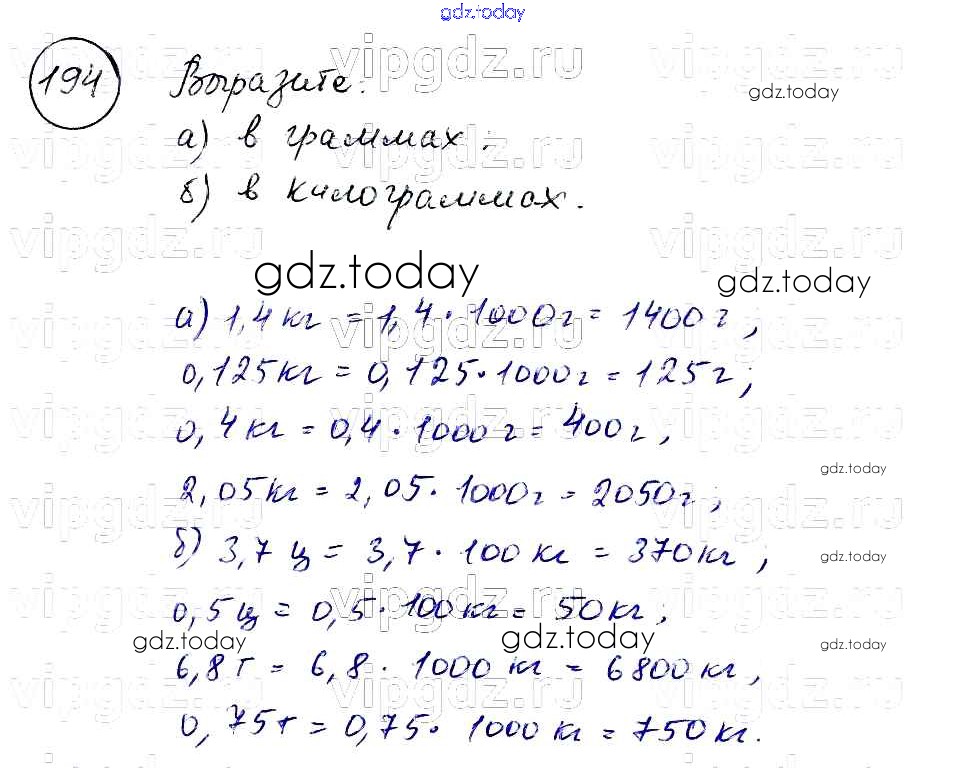 gdz.today
194 Выразите:
а) в граммах.
gdz.today
б) в килограммах.
vipgdz.ru
gdz.today
gdz.today
а) 1,4 кг = 1,4 · 1000 г = 1400 г,
0,125 кг = 0,125 · 1000 г = 125 г;
0,4 кг = 0,4 · 1000 г = 400 г,
gdz.today
2,05 кг = 2,05 · 1000 г = 2050 г;
б) 3,7 ц = 3,7 · 100 кг = 370 кг;
gdz.today
0,5 ц = 0,5 · 100 кг = 50 кг;
gdz.today
gdz.today
gdz.today
6,8 т = 6,8 · 1000 кг = 6800 кг,
0,75 т = 0,75 · 1000 кг = 750 кг.